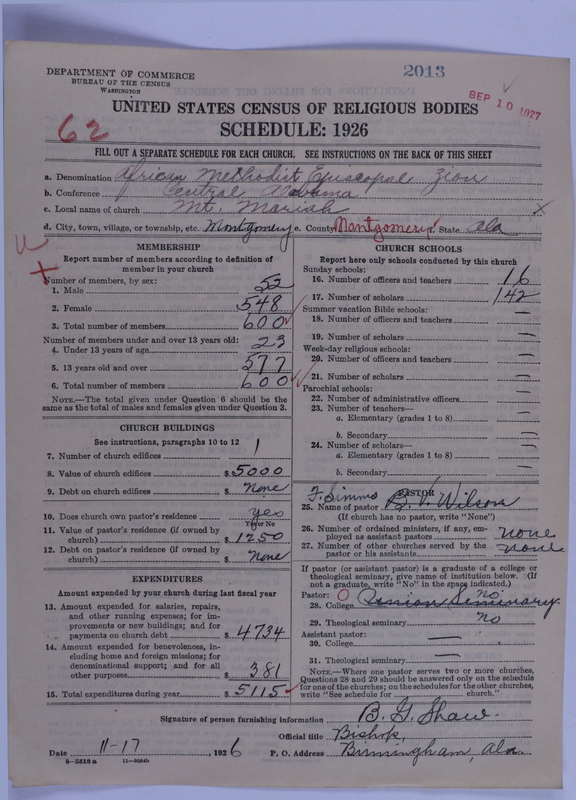 DEPARTMENT OF COMMERCE
BUREAU OF THE CENSUS
WASHINGTON
2013
SEP 10 1927
62
UNITED STATES CENSUS OF RELIGIOUS BODIES
SCHEDULE: 1926
FILL OUT A SEPARATE SCHEDULE FOR EACH CHURCH. SEE INSTRUCTIONS ON THE BACK OF THIS SHEET
a. Denomination African Methodist Episcopal Zion
b. Conference Central Alabama
c. Local name of church Mt. Mariah X
d. City, town, village, or township, etc. Montgomery e. County Montgomery f. State Ala
MEMBERSHIP
Report number of members according to definition of
member in your church
Number of members, by sex:
1. Male 52
2. Female 548
3. Total number of members 600
Number of members under and over 13 years old:
4. Under 13 years of age 23
5. 13 years old and over 577
6. Total number of members 600
NOTE.—The total given under Question 6 should be the
same as the total of males and females given under Question 3.
CHURCH BUILDINGS
See instructions, paragraphs 10 to 12
7. Number of church edifices 1
8. Value of church edifices $ 5000
9. Debt on church edifices $ None
10. Does church own pastor's residence Yes
Yes or No
11. Value of pastor's residence (if owned by
church) $ 1250
12. Debt on pastor's residence (if owned by
church) $ None
EXPENDITURES
Amount expended by your church during last fiscal year
13. Amount expended for salaries, repairs,
and other running expenses; for im-
provements or new buildings; and for
payments on church debt $ 4734
14. Amount expended for benevolences, in-
cluding home and foreign missions; for
denominational support; and for all
other purposes $ 381
15. Total expenditures during year $ 5115
CHURCH SCHOOLS
Report here only schools conducted by this church
Sunday schools:
16. Number of officers and teachers 16
17. Number of scholars 142
Summer vacation Bible schools:
18. Number of officers and teachers —
19. Number of scholars —
Week-day religious schools:
20. Number of officers and teachers —
21. Number of scholars —
Parochial schools:
22. Number of administrative officers —
23. Number of teachers—
a. Elementary (grades 1 to 8) —
b. Secondary —
24. Number of scholars—
a. Elementary (grades 1 to 8) —
b. Secondary —
PASTOR
F. Simms
25. Name of pastor B. V. Wilson
(If church has no pastor, write "None")
26. Number of ordained ministers, if any, em-
ployed as assistant pastors none
27. Number of other churches served by the
pastor or his assistants none
If pastor (or assistant pastor) is a graduate of a college or
theological seminary, give name of institution below. (If
not a graduate, write "No" in the space indicated.)
Pastor: No
28. College Seminary
29. Theological seminary No
Assistant pastor:
30. College —
31. Theological seminary —
NOTE.—Where one pastor serves two or more churches,
Questions 28 and 29 should be answered only on the schedule
for one of the churches; on the schedules for the other churches,
write "See schedule for church."
Signature of person furnishing information B. G. Shaw
Official title Bishop
Date 11-17, 1926 P. O. Address Birmingham, Ala
8—5518a 11—9024b